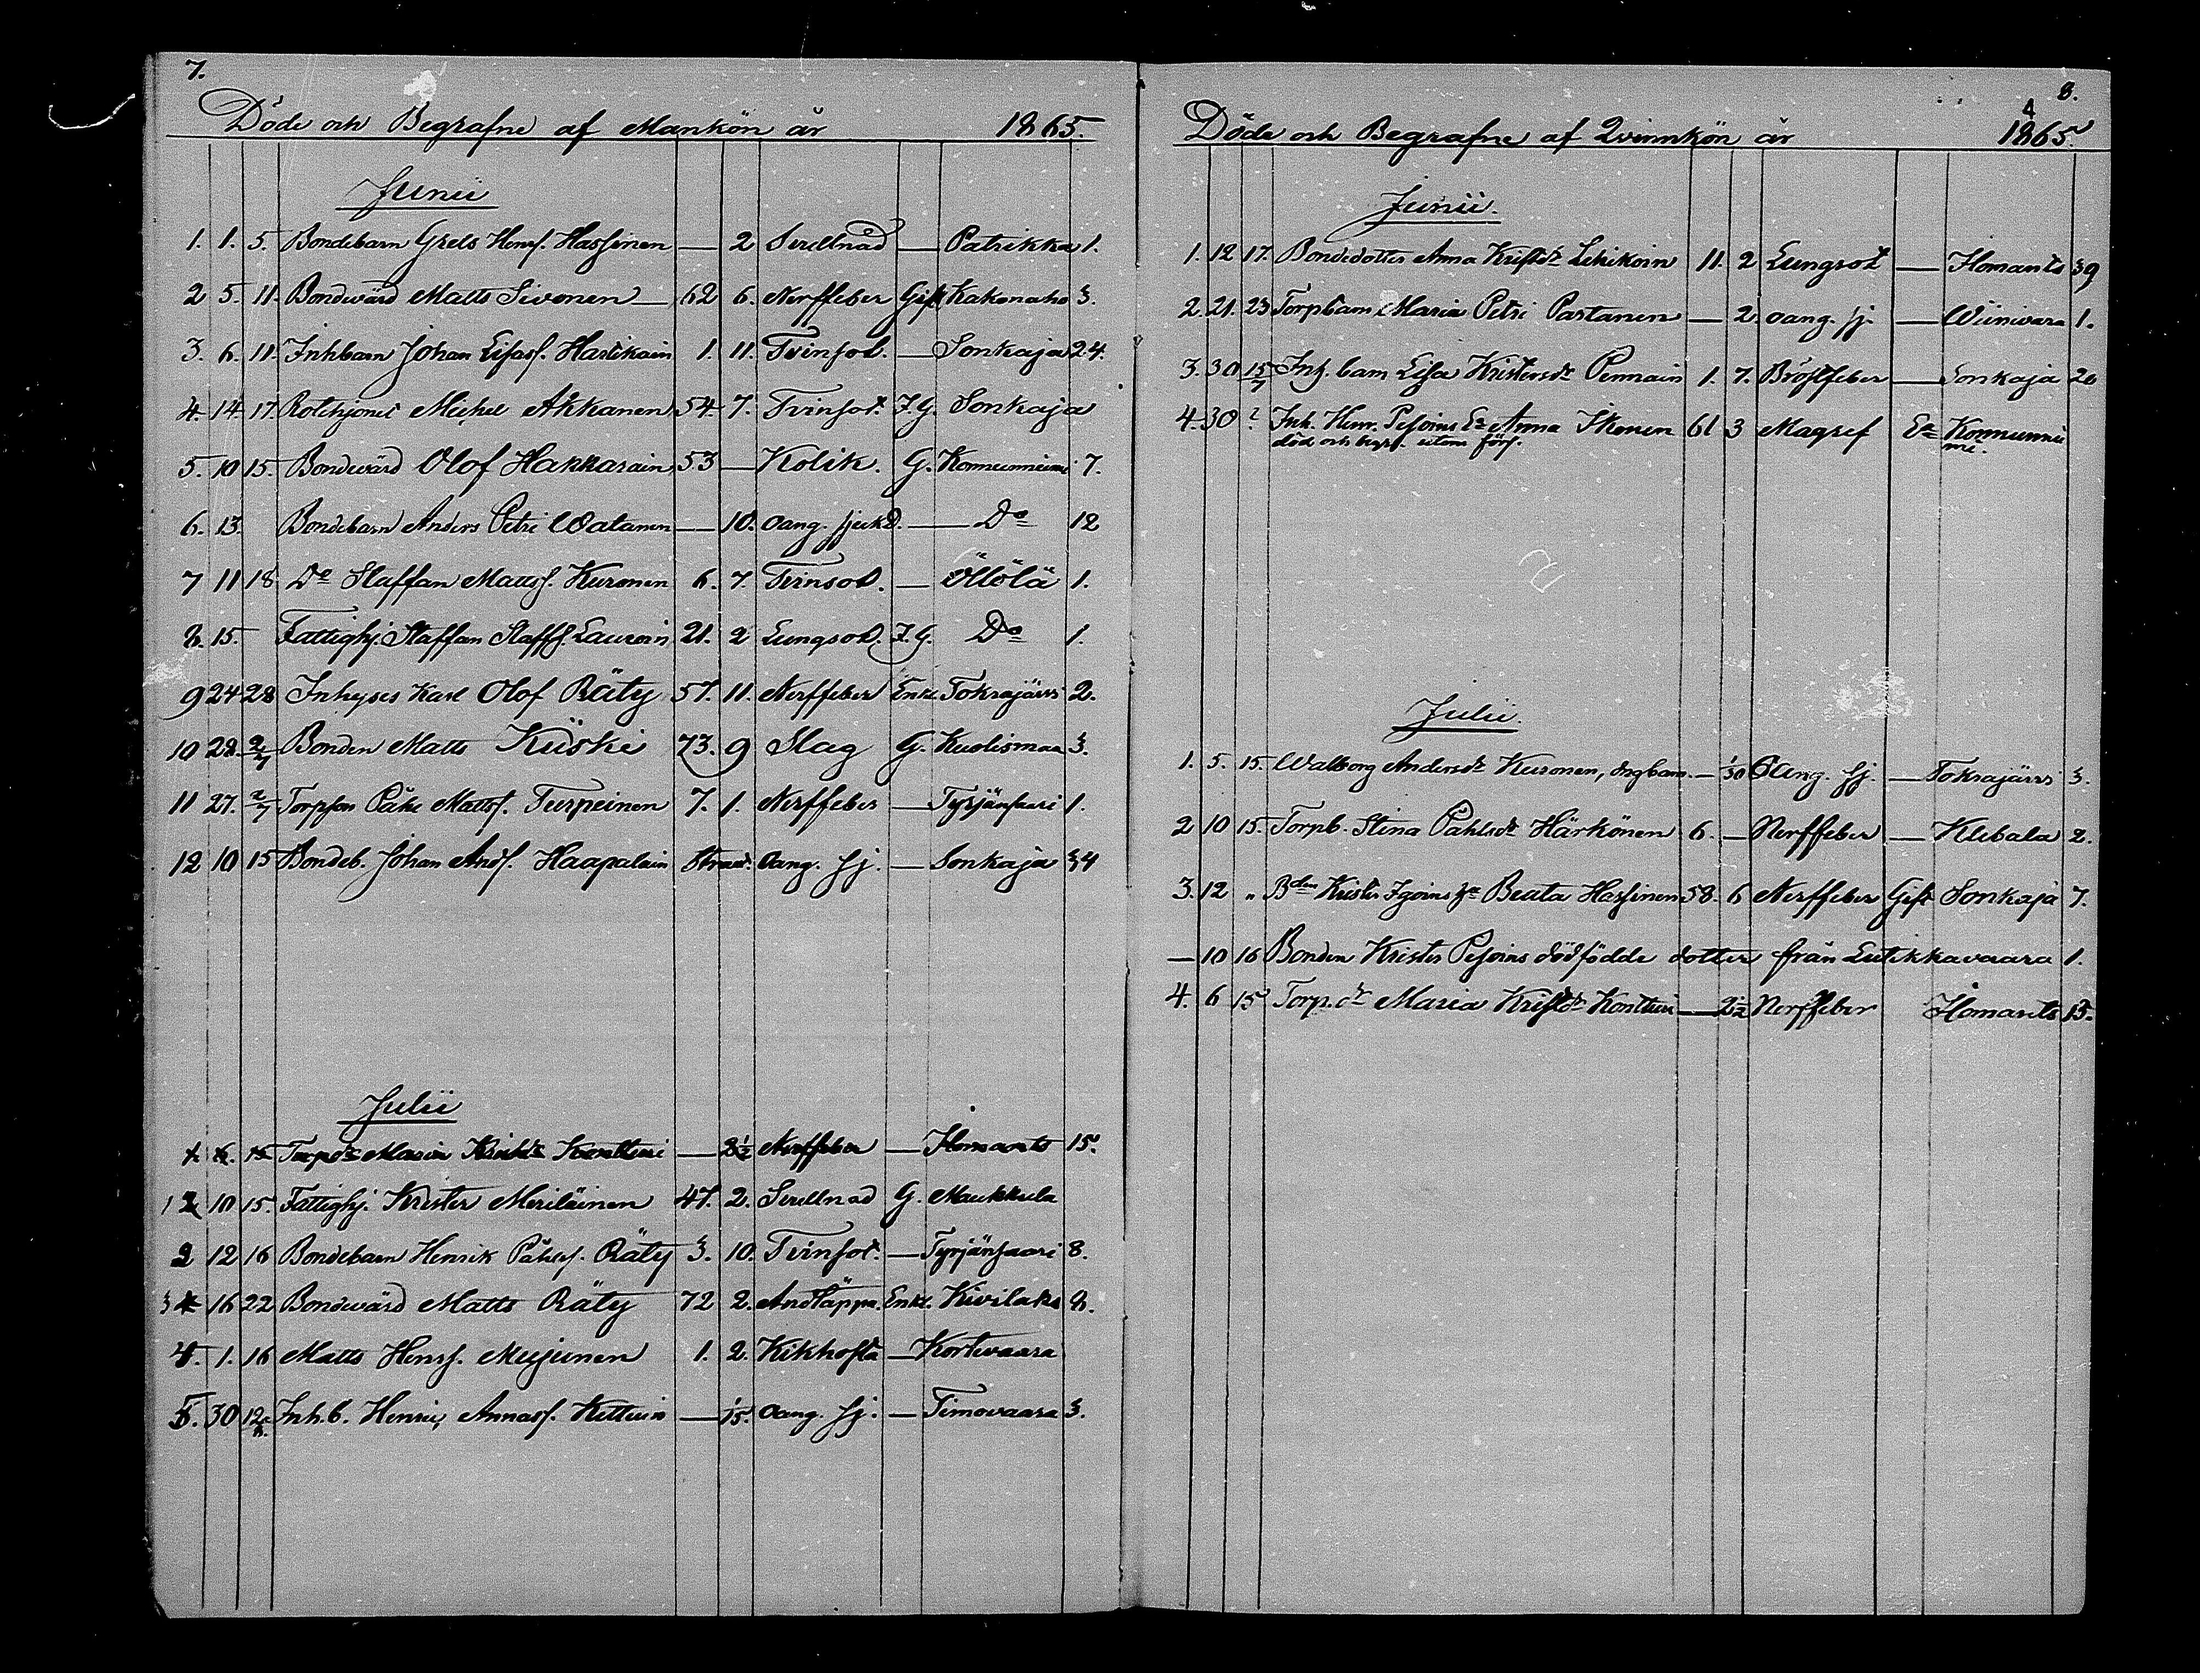 7.
Döde och Begrafne af Mankön år 1865.
Junii
1. 1. 5. Bondebarn Grels Henrs. Hassinen — 2 Srellnad — Patrikka 1.
2 5. 11. Bondevärd Matts Sivonen — 62 6. Nerffeber Gift Kakonaho 3.
3. 6. 11. Inhbarn Johan Eliass. Hartikain 1. 11. Tvinsot. — Sonkaja 24.
4. 14. 17. Rothjonet Michel Akkanen 54 7. Tvinsot. I.G. Sonkaja
5. 10 15. Bondevärd Olof Hakkarain 53 — Kolik. G. Konnunniemi 7.
6. 13. Bondebarn Anders Petri Watanen — 10. oang. sjukd. — Do 12
7 11 18 Do Staffan Matts. Kuronen 6. 7. Tvinsot. — Öllölä 1.
8. 15. Fattighj. Staffan Staffs. Lauroin 21. 2 Lungsot. I.G. Do 1.
9 24 28 Inhyses Karl Olof Räty 57. 11. Nerffeber Enkl. Tokrajärvi 2.
10 28. 2/7 Bonden Matts Kiiski 73. 9 Slag G. Kuolismaa 3.
11 27. 2/7 Torpson Påhl Matts. Turpeinen 7. 1. Nerffeber — Tyrjänsaari 1.
12 10 15 Bondeb. Johan Ands. Haapalain Straxt. Oang. sj. — Sonkaja 34
Julii
1. 6. 15 Torpdr Maria Kristdr Kontturi — 2½ Nerffeber — Ilomants 15.
1 2 10 15. Fattighj. Krister Meriläinen 47. 2. Srellnad G. Maukkula
2 12 16 Bondebarn Henrik Påhls. Räty 3. 10. Tvinsot. — Tyrjänsaari 8.
3 4 16 22 Bondevärd Matts Räty 72 2. Andtäppa. Enkl. Kivilaks 8.
4. 1. 16 Matts Henrs. Mujunen 1. 2. Kikhosta — Kortevaara
5. 30 12/8. Inh.b. Henric Annass. Kettuin — 1/15. Oang. sj. — Timovaara 3.
8.
Döde och Begrafne af Qvinnkön år 1865.
Junii.
1. 12 17. Bondedotter Anna Kristdr Lehikoin 11. 2 Lungsot — Ilomants 39
2. 21. 23 Torpbarn Maria Petri Partanen — 2. oang. sj. — Wiinivara 1.
3. 30 15/7 Inh. barn Lisa Kristersdr Pennain 1. 7. Bröstfeber — Sonkaja 20
4. 30 ? Inh. Henr. Pesoins Ea Anna Ikonen 61 3 Magref Ea Konnunnie
död och begr. utom förs. mi.
Julii.
1. 5. 15. Walborg Andersdr Kuronen, drgbarn — 1/30 Oang. sj. — Tokrajärvi 3.
2 10 15. Torpb. Stina Påhlsdr Härkönen 6. — Nerffeber — Klebala 2.
3. 12 „ Bden Krister Igoins Ha Beata Hassinen 58. 6 Nerffeber Gift Sonkaja 7.
— 10 16 Bonden Krister Pesoins dödfödde dotter från Lutikkavaara 1.
4. 6 15 Torp.dr Maria Kristdr Kontturi — 2½ Nerffeber Ilomants 15.